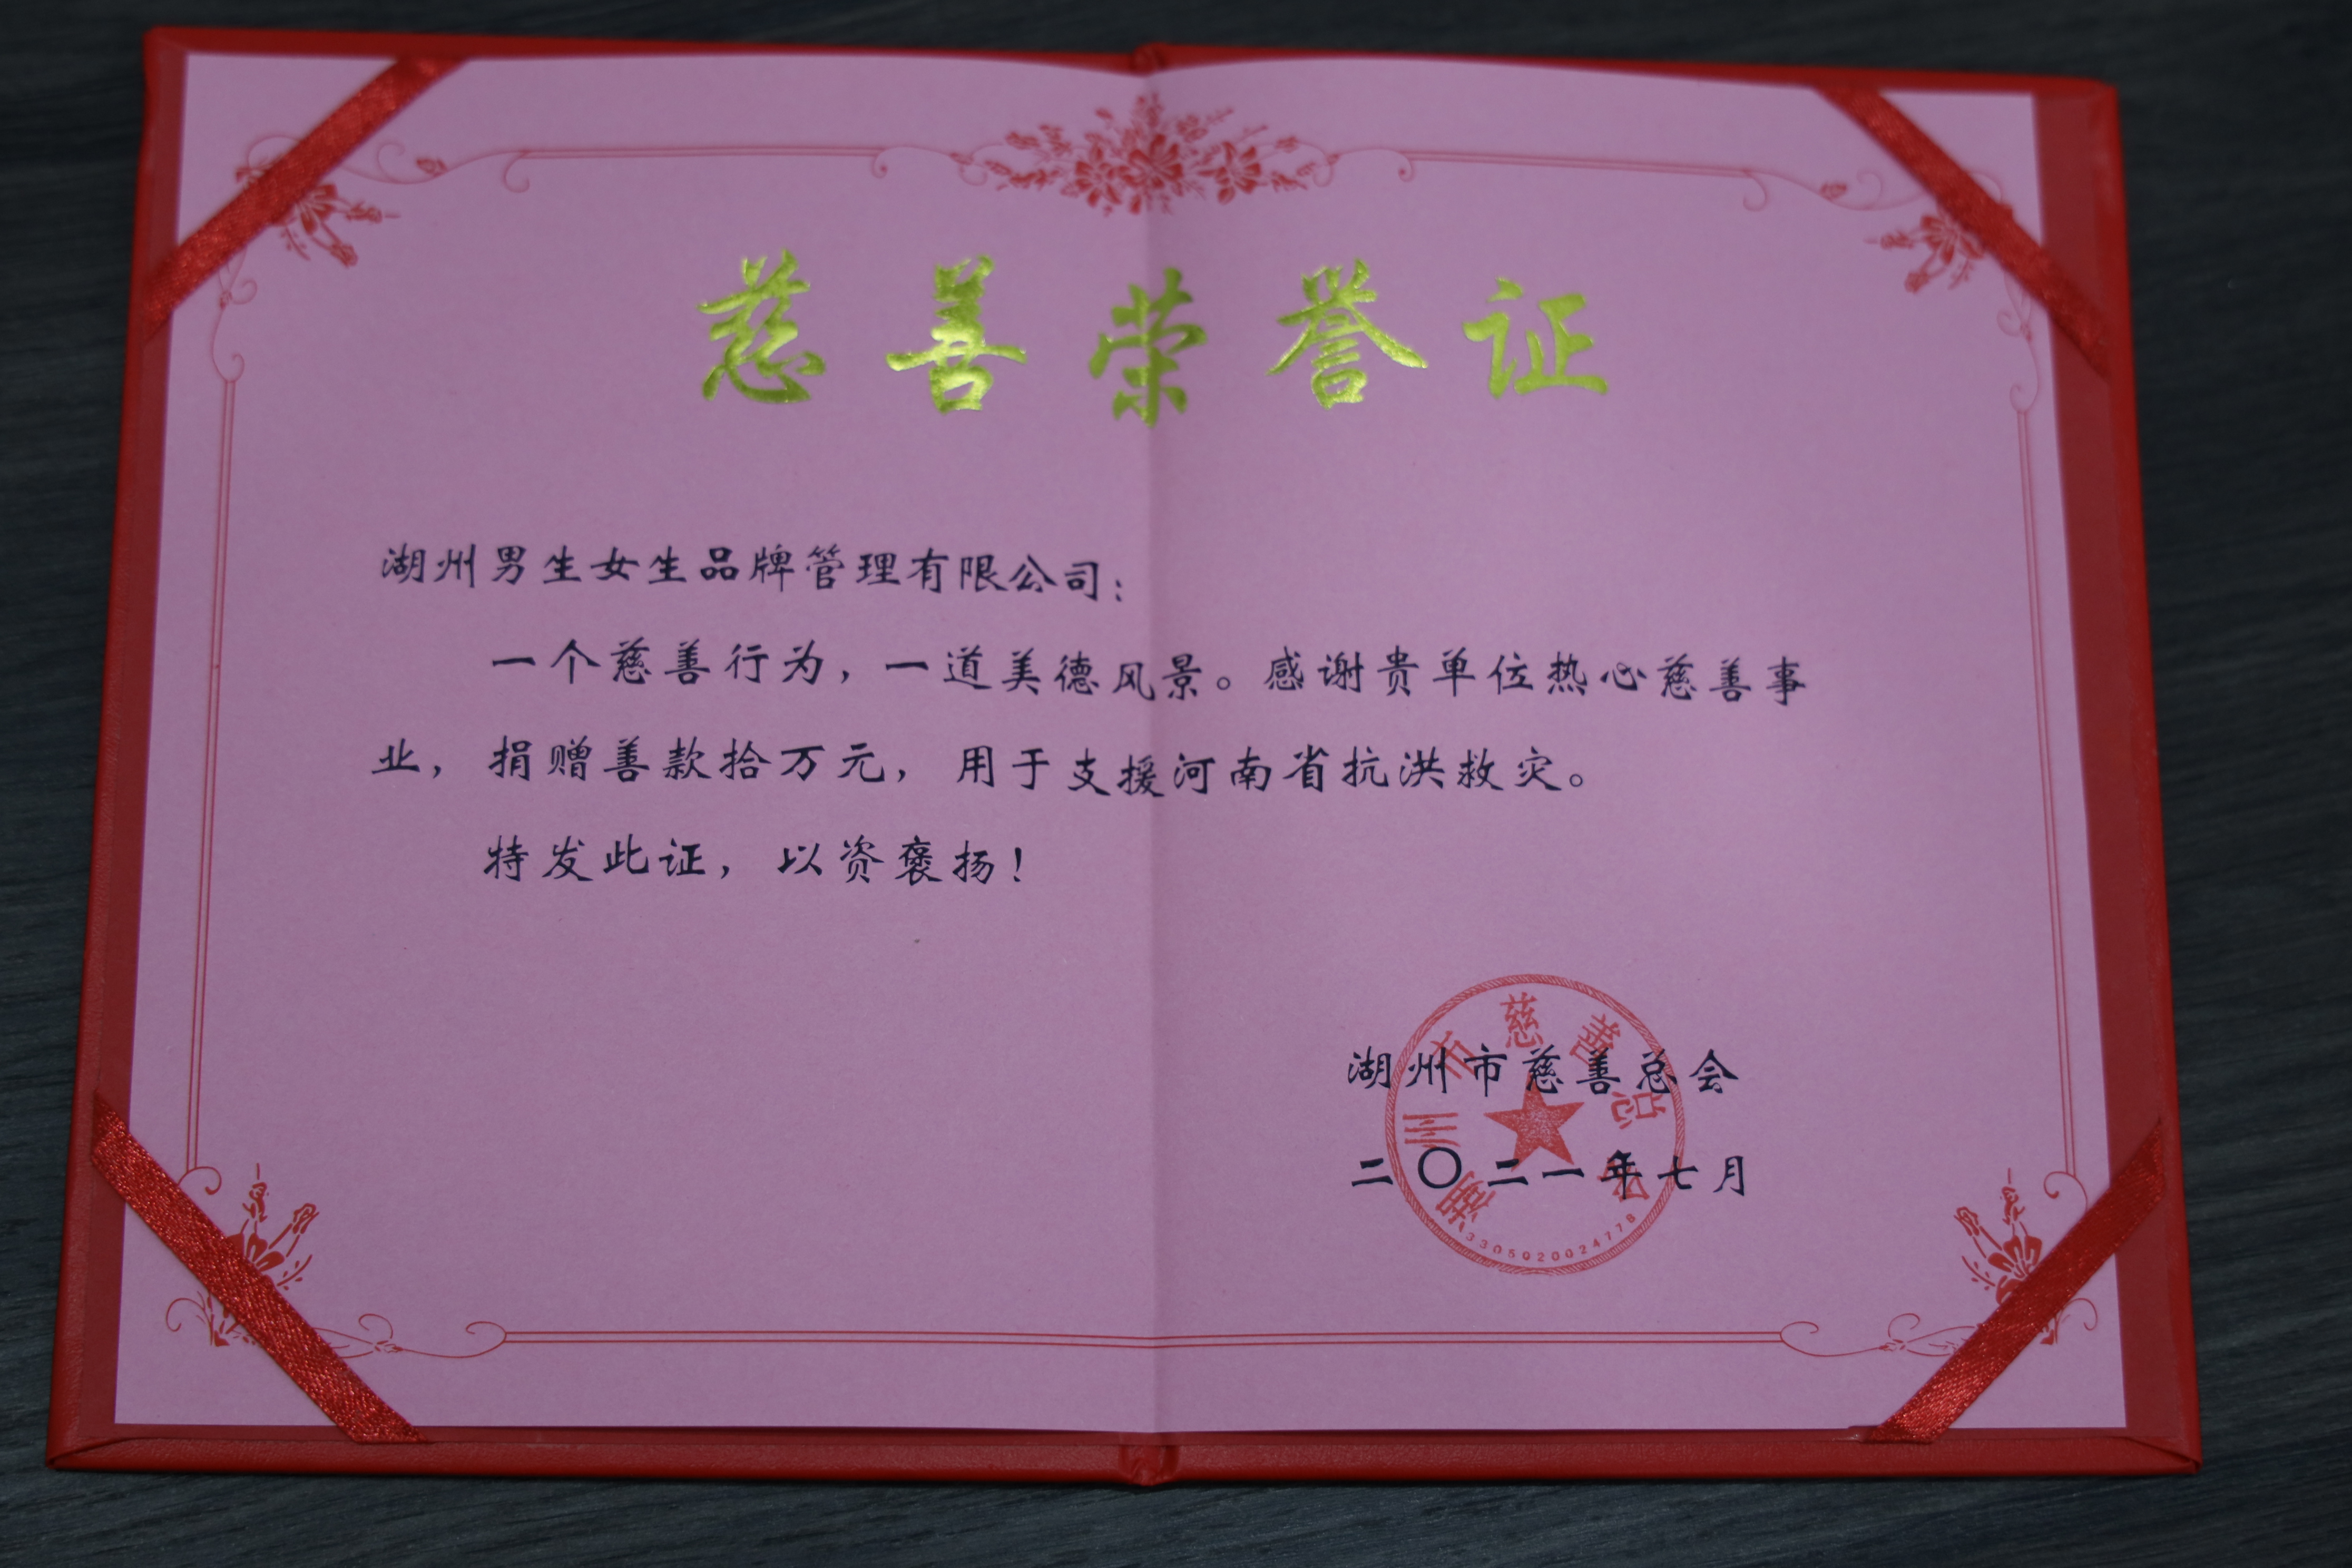 慈善荣誉证
湖州男生女生品牌管理有限公司：
一个慈善行为，一道美德风景。感谢贵单位热心慈善事
业，捐赠善款拾万元，用于支援河南省抗洪救灾。
特发此证，以资褒扬！
湖州市慈善总会
二〇二一年七月
湖州市慈善总会
3305020024778